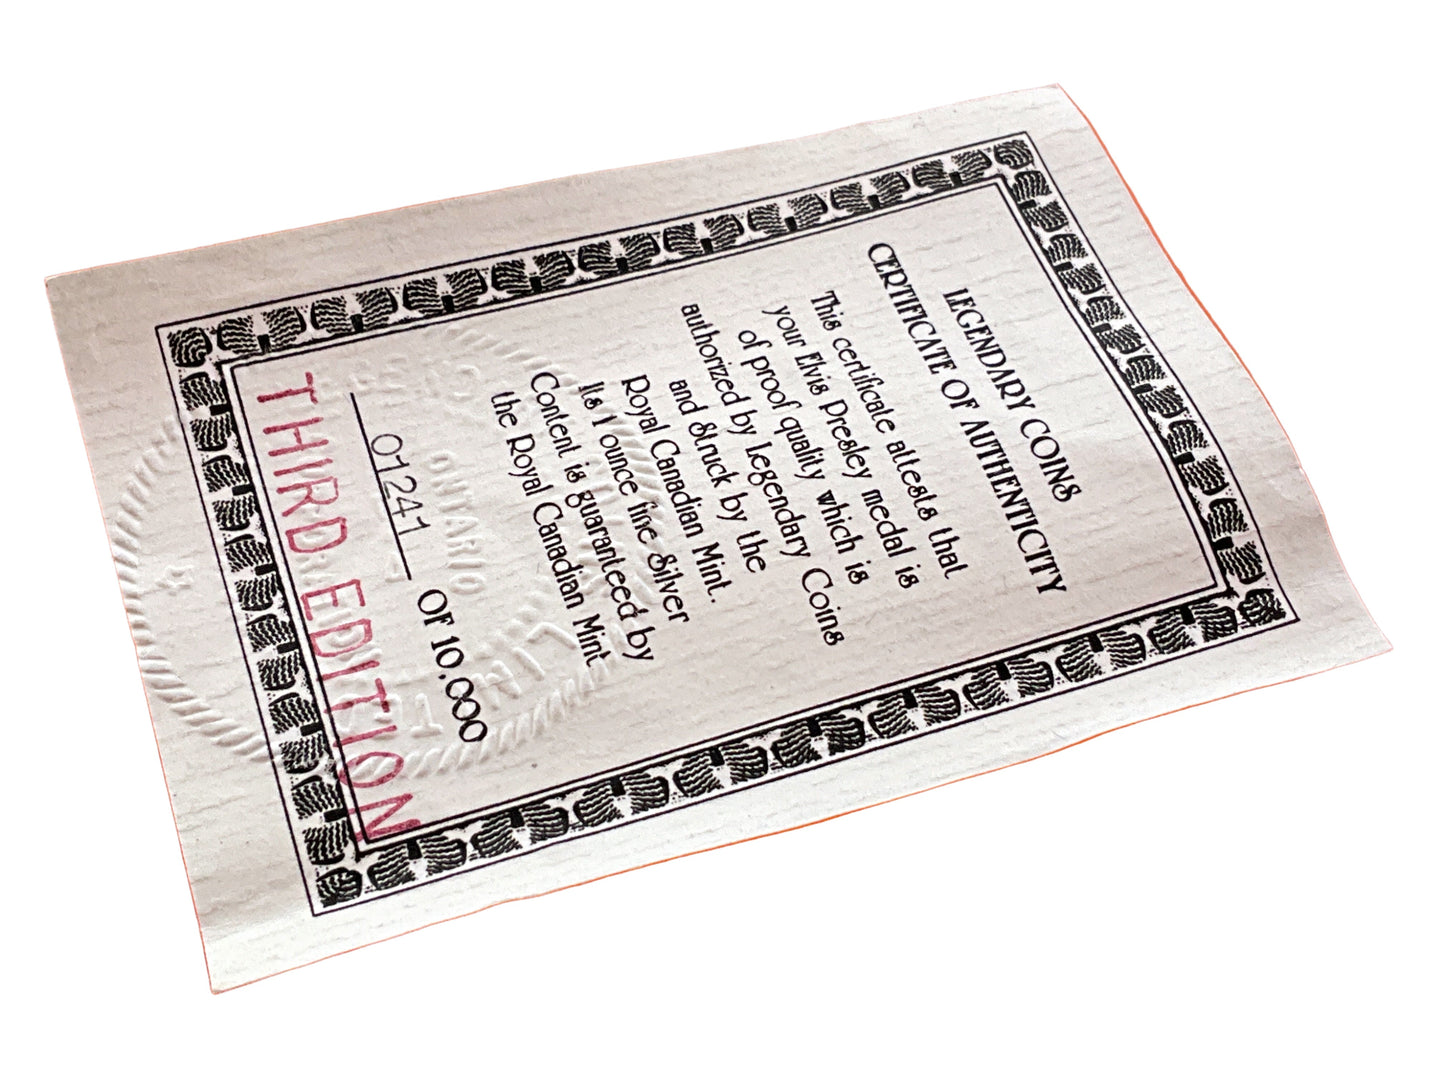 LEGENDARY COINS
CERTIFICATE OF AUTHENTICITY
This certificate attests that
your Elvis Presley medal is
of proof quality which is
authorized by Legendary Coins
and struck by the
Royal Canadian Mint.
Its 1 ounce fine Silver
Content is guaranteed by
the Royal Canadian Mint
01241 OF 10,000
THIRD EDITION
ONTARIO